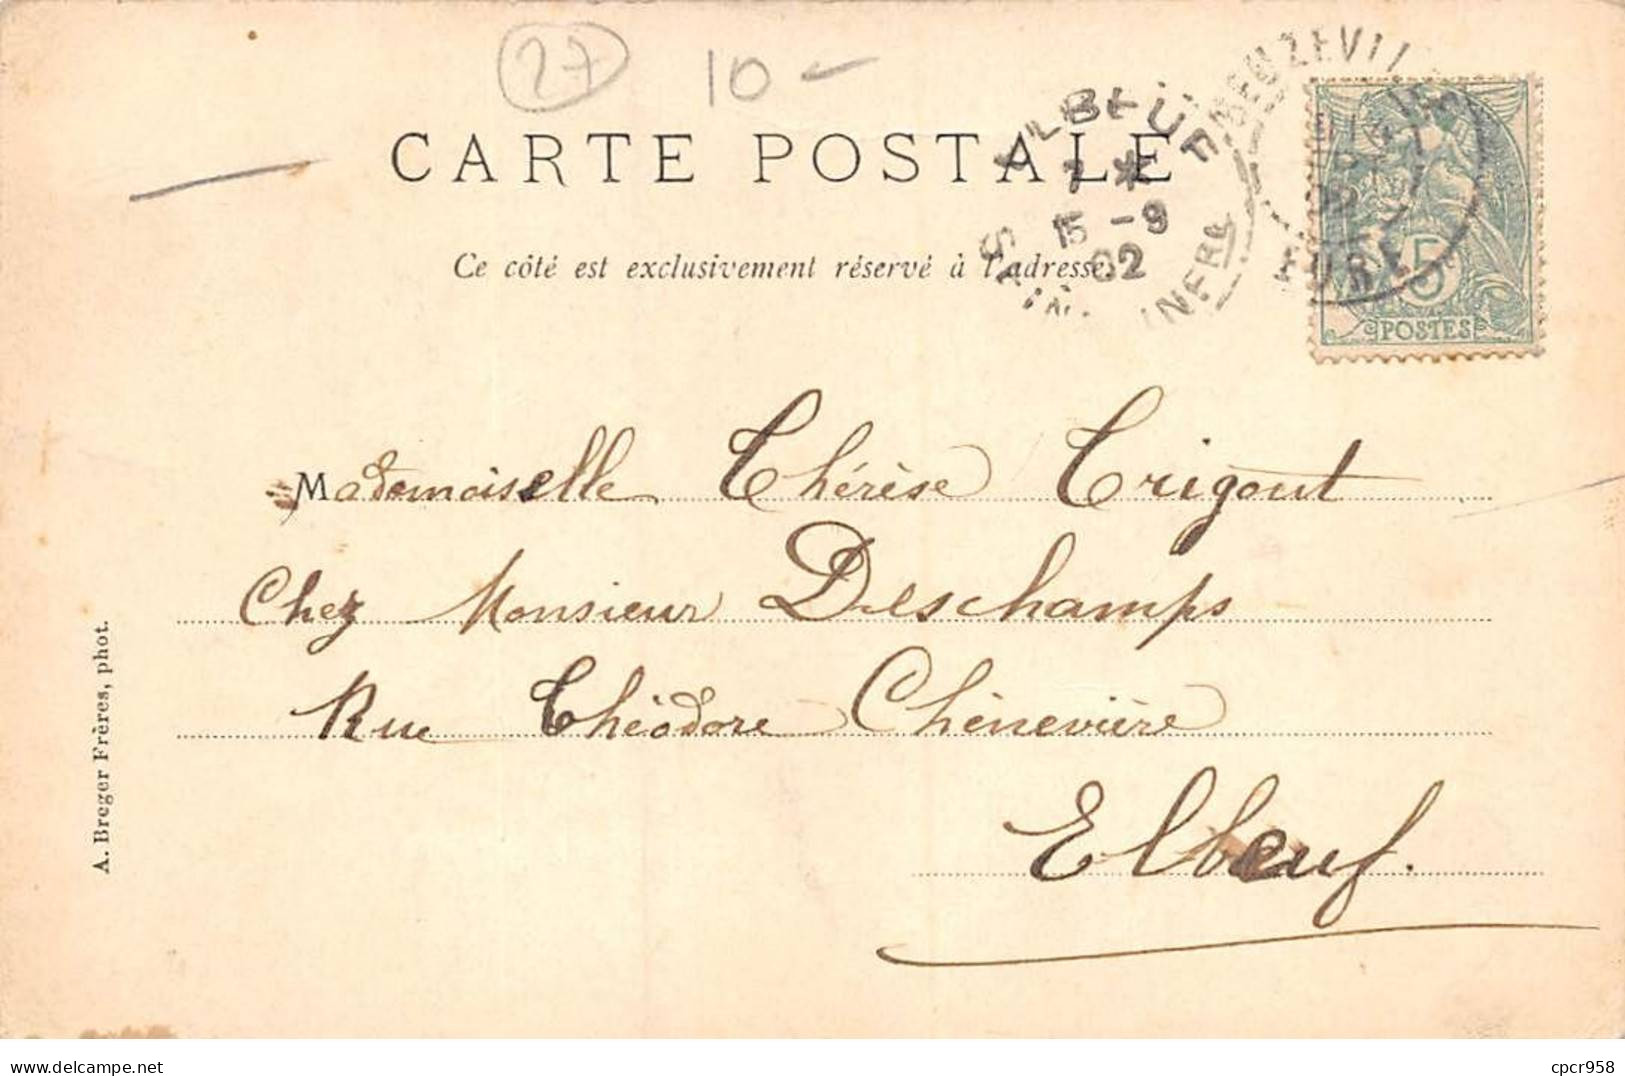 27
10
CARTE POSTALE
Ce côté est exclusivement réservé à l'adresse.
ELBEUF
7 *
15 - 9
02
INFRE
BEUZEVILLE
EURE
5
POSTES
Mademoiselle Thérèse Trigout
Chez Monsieur Deschamps
Rue Théodore Chènevière
Elbeuf.
A. Breger Frères, phot.
https://www.delcampe.net
cpcr958